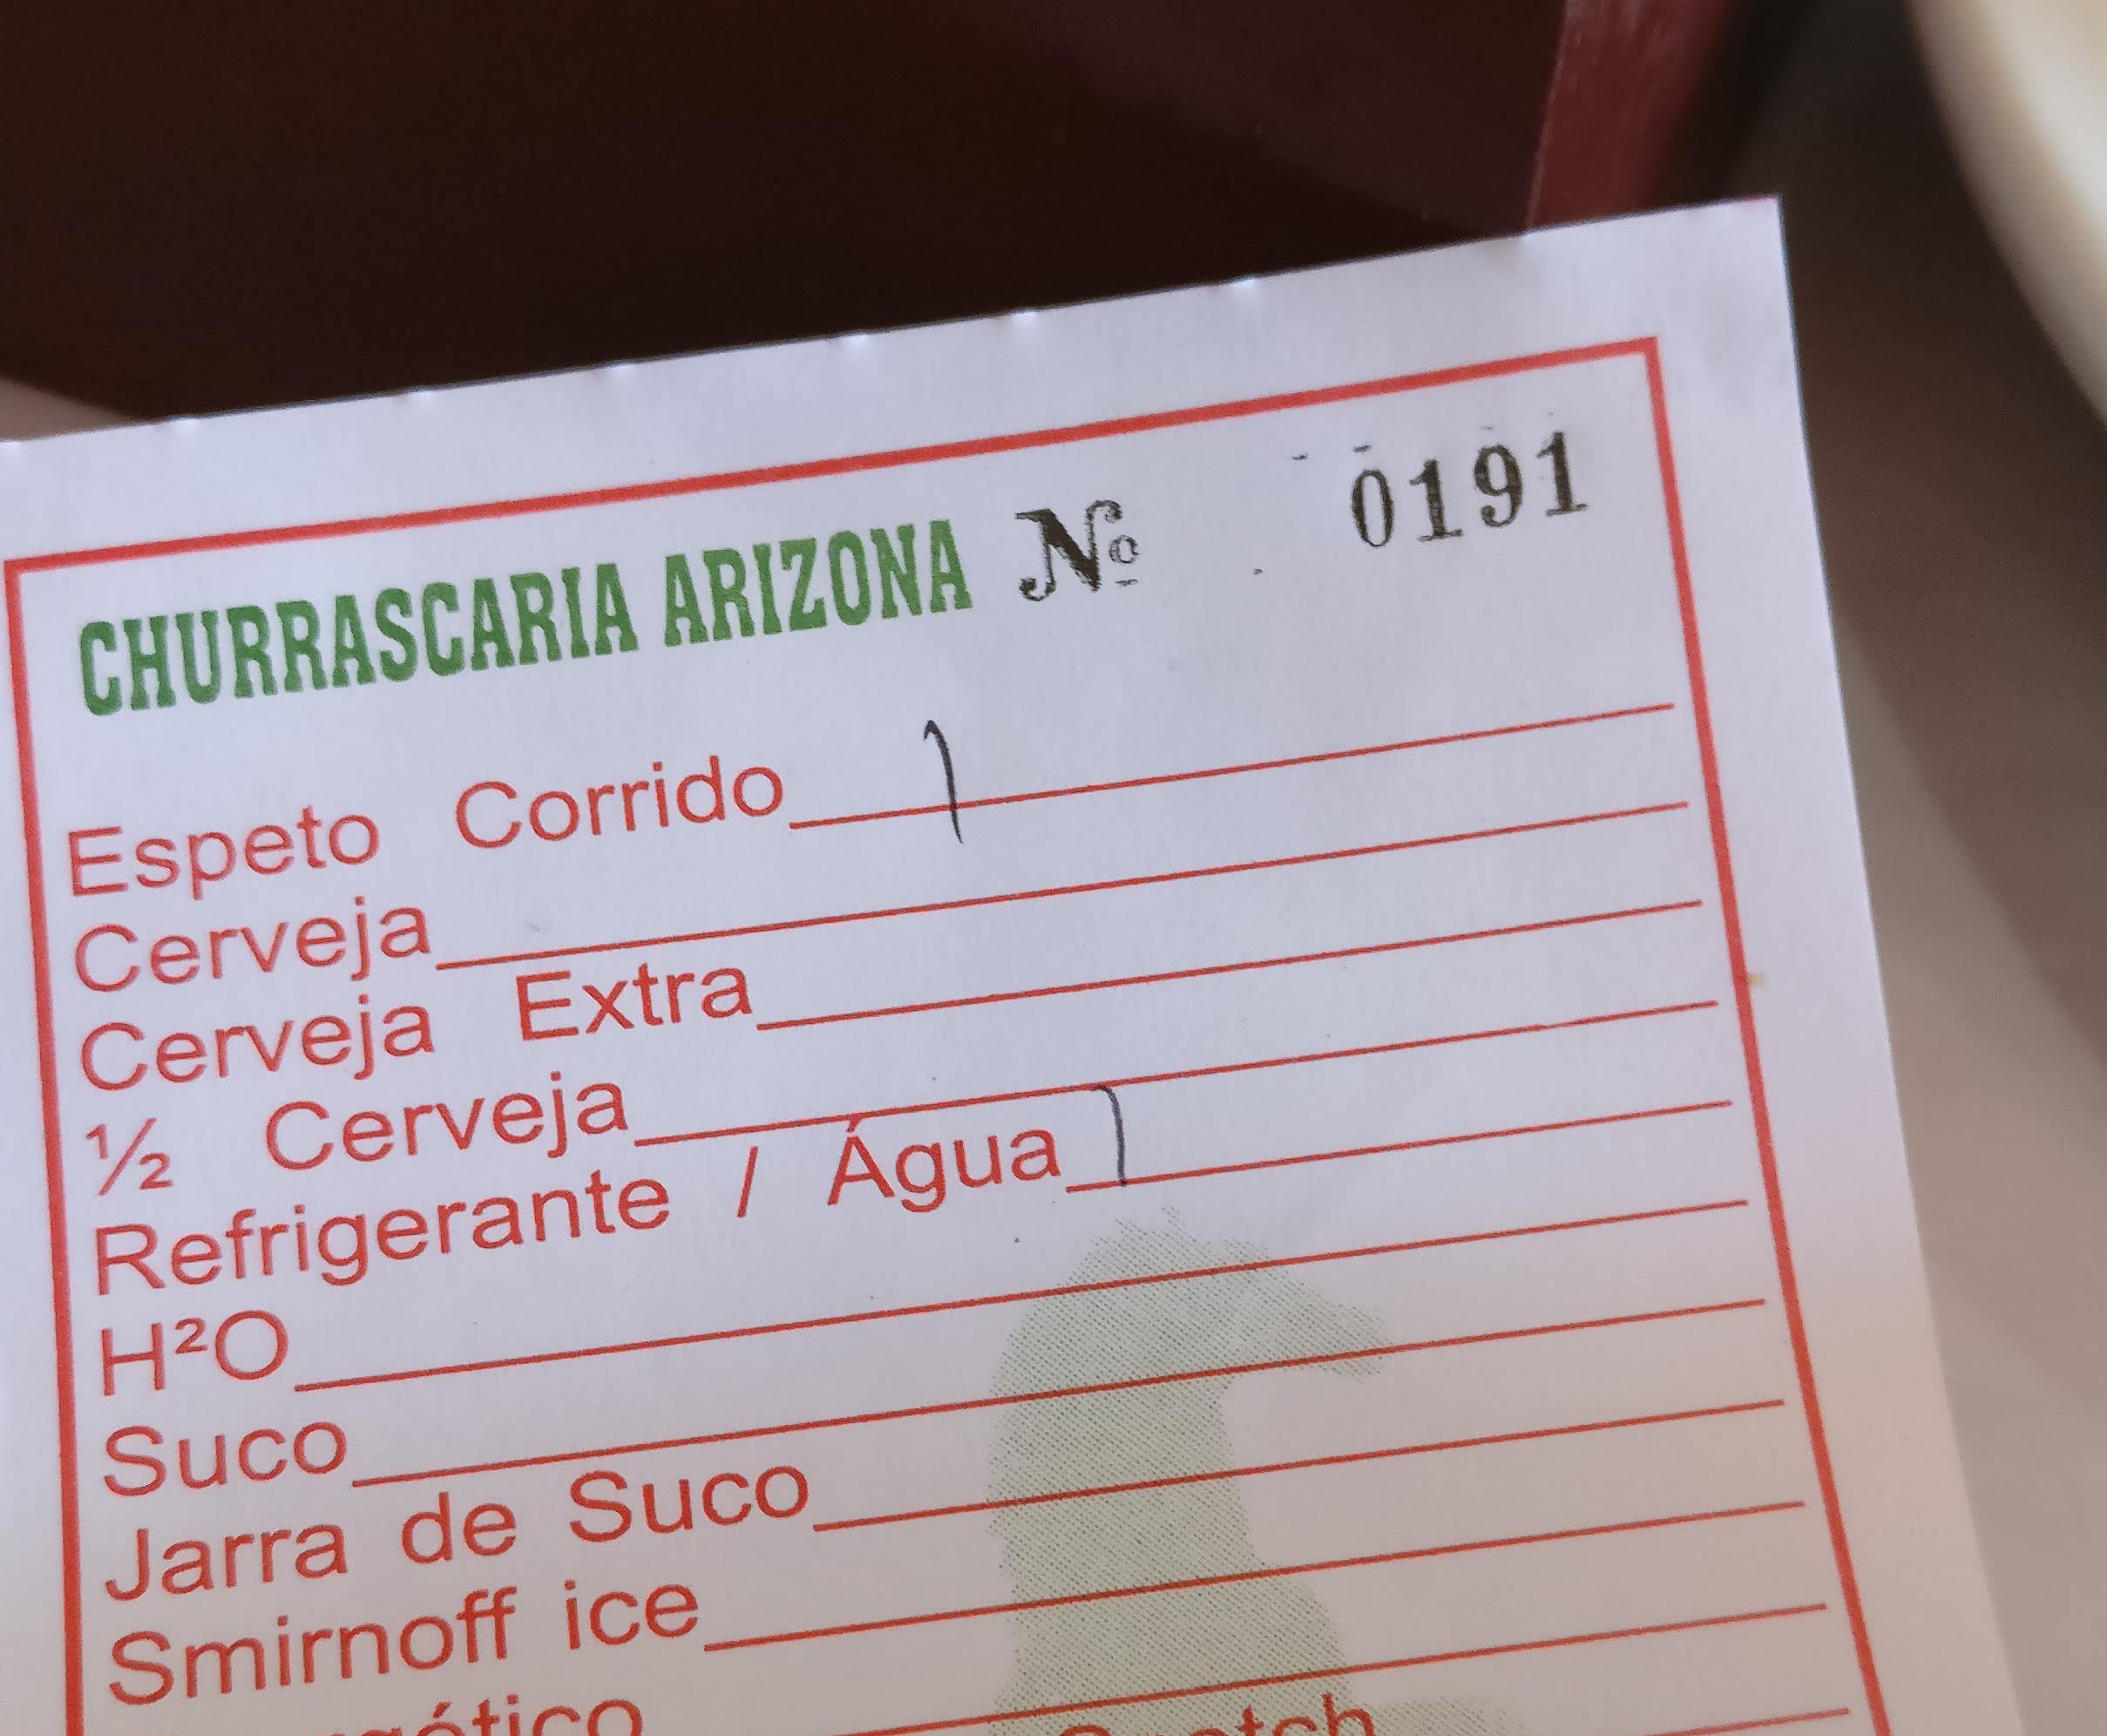 CHURRASCARIA ARIZONA Nº 0191
Espeto Corrido 1
Cerveja
Cerveja Extra
½ Cerveja
Refrigerante / Água 1
H²O
Suco
Jarra de Suco
Smirnoff ice